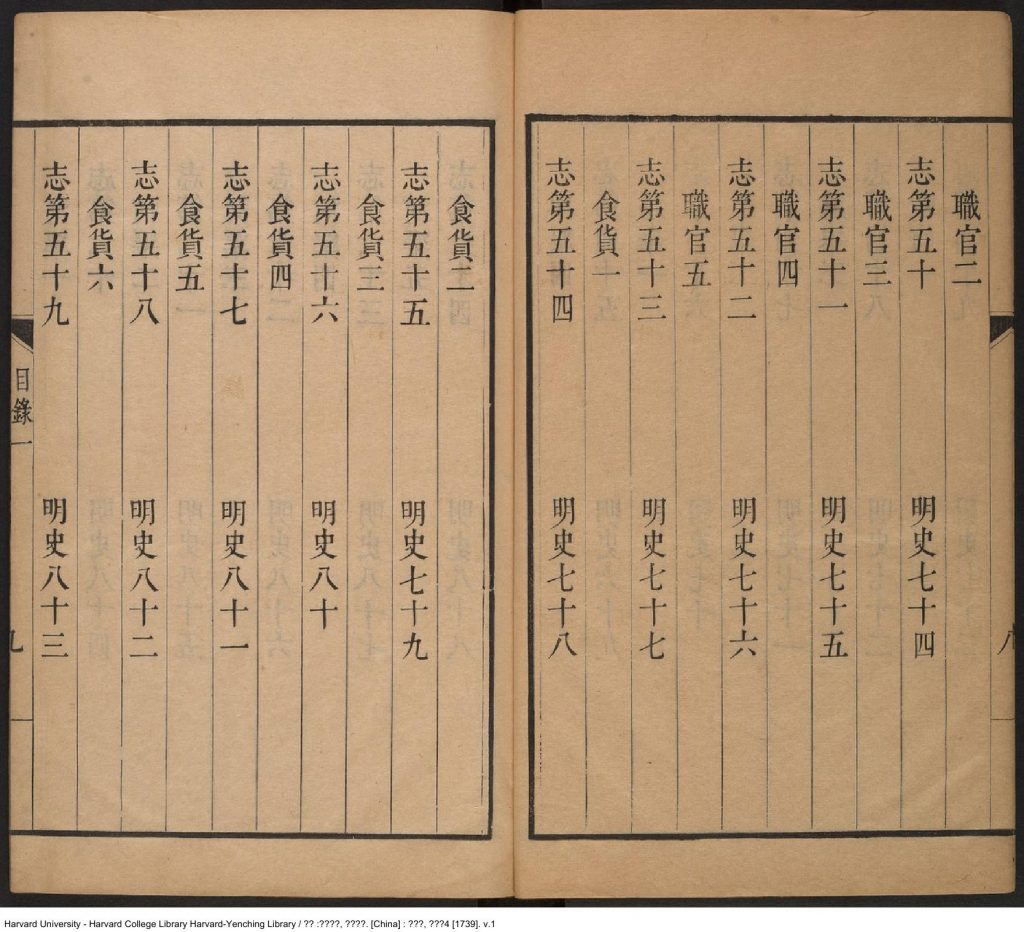 職官二
志第五十 明史七十四
職官三
志第五十一 明史七十五
職官四
志第五十二 明史七十六
職官五
志第五十三 明史七十七
食貨一
志第五十四 明史七十八
食貨二
志第五十五 明史七十九
食貨三
志第五十六 明史八十
食貨四
志第五十七 明史八十一
食貨五
志第五十八 明史八十二
食貨六
志第五十九 明史八十三
目錄一 九
Harvard University - Harvard College Library Harvard-Yenching Library / ?? :????, ????. [China] : ???, ???4 [1739]. v.1